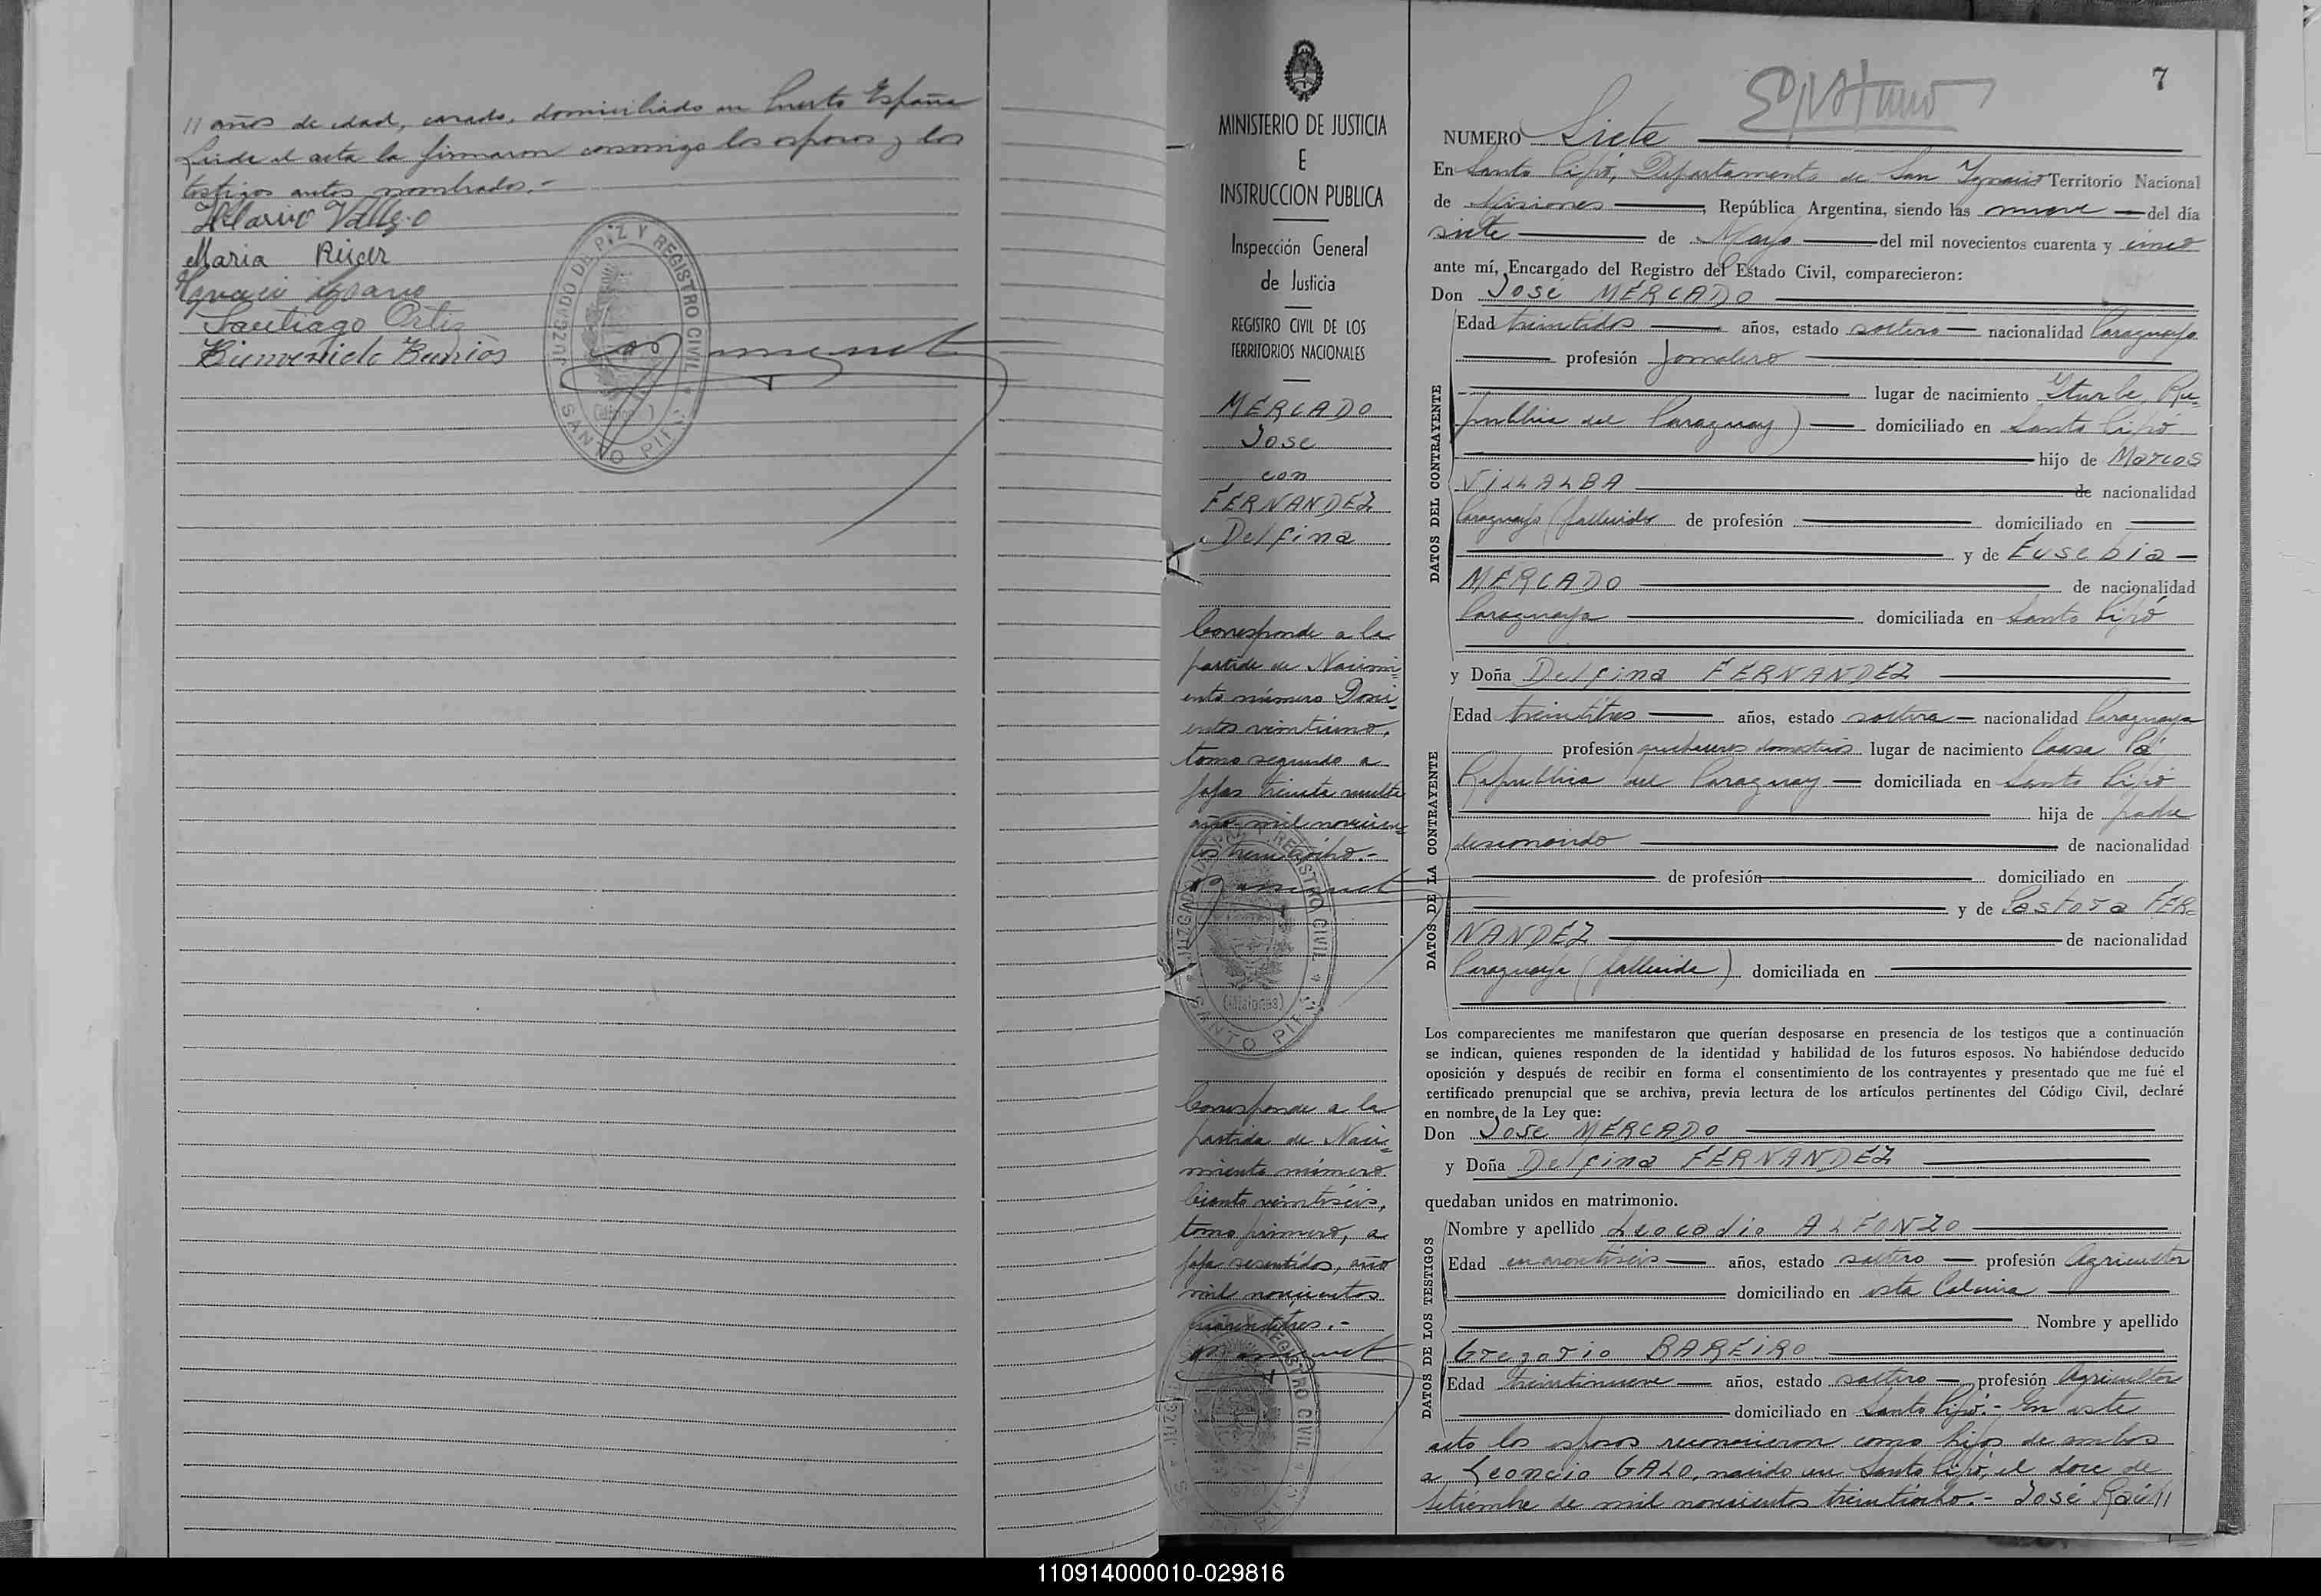 11 años de edad, casado, domiciliado en Puerto España
Leida el acta la firmaron conmigo los esposos y los
testigos antes nombrados.-
Hilario Vallejo
Maria
Santiago Ortiz
Bienvenido
JUZGADO DE PAZ Y REGISTRO CIVIL
SANTO PIPÓ
(Misiones)
MINISTERIO DE JUSTICIA
E
INSTRUCCION PUBLICA
Inspección General
de Justicia
REGISTRO CIVIL DE LOS
TERRITORIOS NACIONALES
MERCADO
Jose
con
FERNANDEZ
Delfina
Corresponde a la
partida de Nacimi-
ento número Dosci-
entos veintiuno,
tomo segundo a
fojas treinta vuelta
año mil novecien-
tos treintiocho.-
JUZGADO DE PAZ Y REGISTRO CIVIL
SANTO PIPÓ
(Misiones)
Corresponde a la
partida de Naci-
miento número
Ciento veintiseis,
tomo primero, a
foja sesentidos, año
mil novecientos
cuarentitres.-
REGISTRO CIVIL
7
NUMERO Siete
En Santo Pipó, Departamento de San Ignacio Territorio Nacional
de Misiones, República Argentina, siendo las nueve del día
siete de Mayo del mil novecientos cuarenta y cinco
ante mí, Encargado del Registro del Estado Civil, comparecieron:
Don Jose MERCADO
DATOS DEL CONTRAYENTE
Edad treintidos años, estado soltero nacionalidad Paraguayo
profesión Jornalero
lugar de nacimiento Iturbe, Re-
publica del Paraguay) domiciliado en Santo Pipó
hijo de Marcos
VILLALBA de nacionalidad
Paraguayo (fallecido de profesión domiciliado en
y de Eusebia
MERCADO de nacionalidad
Paraguaya domiciliada en Santo Pipó
y Doña Delfina FERNANDEZ
DATOS DE LA CONTRAYENTE
Edad treintitres años, estado soltera nacionalidad Paraguaya
profesión quehaceres domesticos lugar de nacimiento Caasa Pá
Republica del Paraguay domiciliada en Santo Pipó
hija de padre
desconocido de nacionalidad
de profesión domiciliado en
y de Pastora FER-
NANDEZ de nacionalidad
Paraguaya (fallecida) domiciliada en
Los comparecientes me manifestaron que querían desposarse en presencia de los testigos que a continuación
se indican, quienes responden de la identidad y habilidad de los futuros esposos. No habiéndose deducido
oposición y después de recibir en forma el consentimiento de los contrayentes y presentado que me fué el
certificado prenupcial que se archiva, previa lectura de los artículos pertinentes del Código Civil, declaré
en nombre de la Ley que:
Don Jose MERCADO
y Doña Delfina FERNANDEZ
quedaban unidos en matrimonio.
DATOS DE LOS TESTIGOS
Nombre y apellido Leocadio ALFONZO
Edad cuarentiseis años, estado soltero profesión Agricultor
domiciliado en esta Colonia
Nombre y apellido
Gregorio BAREIRO
Edad treintinueve años, estado soltero profesión Agricultor
domiciliado en Santo Pipó.- En este
acto los esposos reconocieron como hijos de ambos
a Leoncio GALO, nacido en Santo Pipó, el doce de
Setiembre de mil novecientos treintiocho.- José Raúl
110914000010-029816